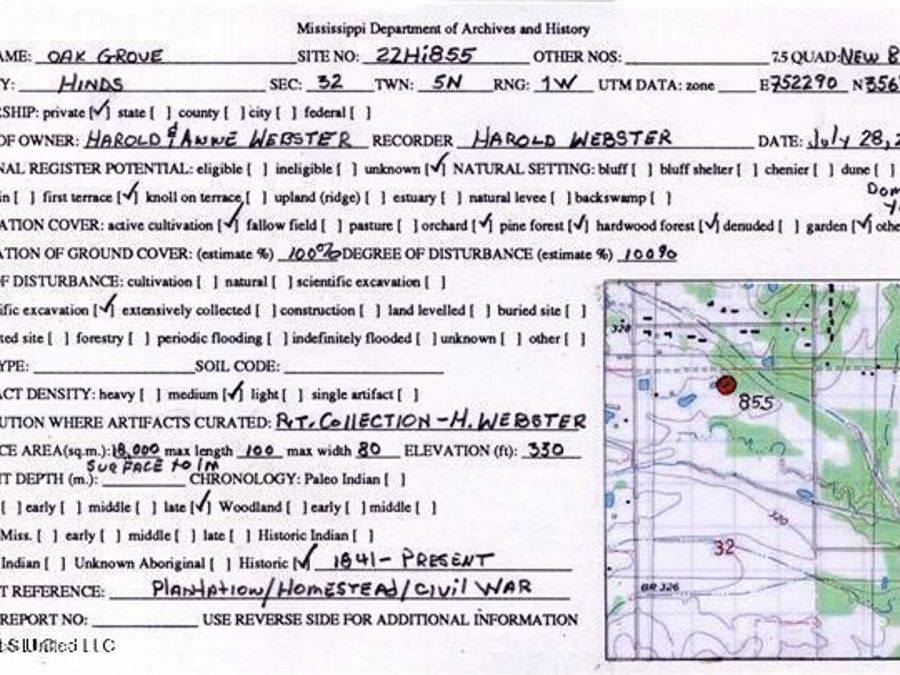 Mississippi Department of Archives and History
AME: OAK GROVE SITE NO: 22Hi855 OTHER NOS: 7.5 QUAD: NEW B
Y: HINDS SEC: 32 TWN: 5N RNG: 1W UTM DATA: zone E752290 N356
RSHIP: private [✓] state [ ] county [ ] city [ ] federal [ ]
OF OWNER: HAROLD & ANNE WEBSTER RECORDER HAROLD WEBSTER DATE: July 28, 2
NAL REGISTER POTENTIAL: eligible [ ] ineligible [ ] unknown [✓] NATURAL SETTING: bluff [ ] bluff shelter [ ] chenier [ ] dune [ ]
in [ ] first terrace [✓] knoll on terrace [ ] upland (ridge) [ ] estuary [ ] natural levee [ ] backswamp [ ]
Dom
Y
ATION COVER: active cultivation [✓] fallow field [ ] pasture [ ] orchard [✓] pine forest [✓] hardwood forest [✓] denuded [ ] garden [✓] othe
ATION OF GROUND COVER: (estimate %) 100% DEGREE OF DISTURBANCE (estimate %) 100%
F DISTURBANCE: cultivation [ ] natural [ ] scientific excavation [ ]
ific excavation [✓] extensively collected [ ] construction [ ] land levelled [ ] buried site [ ]
ted site [ ] forestry [ ] periodic flooding [ ] indefinitely flooded [ ] unknown [ ] other [ ]
YPE: SOIL CODE:
ACT DENSITY: heavy [ ] medium [✓] light [ ] single artifact [ ]
UTION WHERE ARTIFACTS CURATED: Pvt. Collection - H. WEBSTER
CE AREA(sq.m.): 18,000 max length 100 max width 80 ELEVATION (ft): 330
SURFACE to 1M
T DEPTH (m.): CHRONOLOGY: Paleo Indian [ ]
[ ] early [ ] middle [ ] late [✓] Woodland [ ] early [ ] middle [ ]
Miss. [ ] early [ ] middle [ ] late [ ] Historic Indian [ ]
Indian [ ] Unknown Aboriginal [ ] Historic [✓] 1841 - PRESENT
T REFERENCE: Plantation/Homestead/Civil WAR
REPORT NO: USE REVERSE SIDE FOR ADDITIONAL INFORMATION
328
855
320
32
BR 326